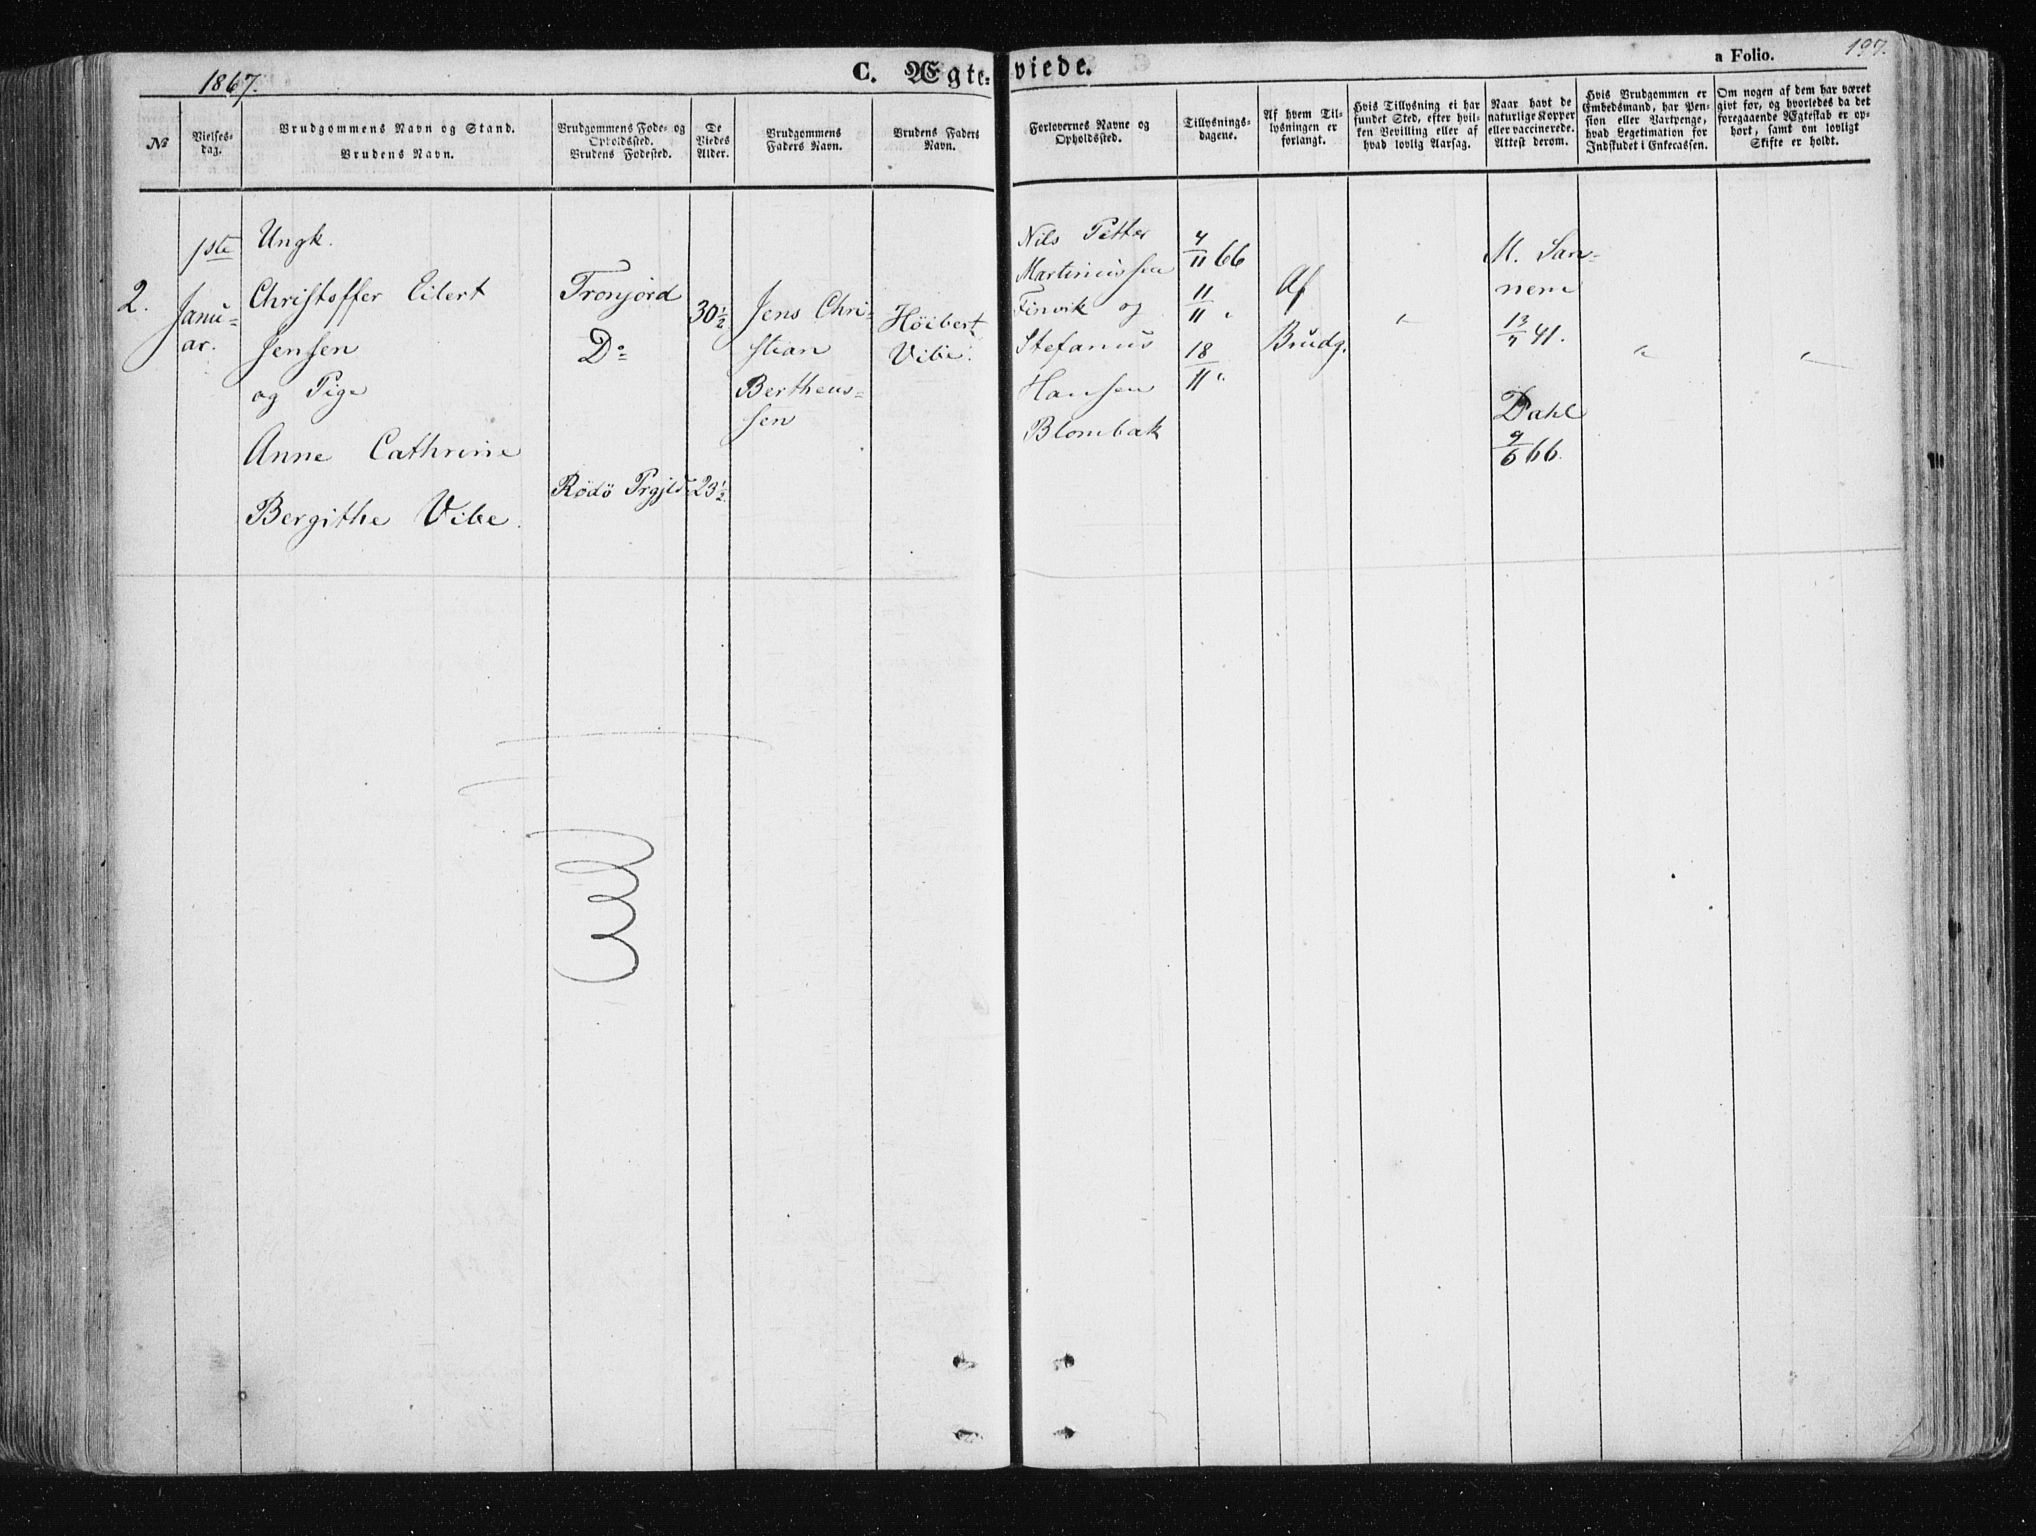 1867.
C. Ægte-
viede.
a Folio.
197.
No
Vielses-
dag.
Brudgommens Navn og Stand.
Brudens Navn.
Brudgommens Føde- og
Opholdssted.
Brudens Fødested.
De
Viedes
Alder.
Brudgommens
Faders Navn.
Brudens Faders
Navn.
Forlovernes Navne og
Opholdssted.
Tillysnings-
dagene.
Af hvem Til-
lysningen er
forlangt.
Hvis Tillysning ei har
fundet Sted, efter hvil-
ken Bevilling eller af
hvad lovlig Aarsag.
Naar havt de
naturlige Kopper
eller vaccinerede.
Attest derom.
Hvis Brudgommen er
Embedsmand, har Pen-
sion eller Vartpenge,
hvad Legetimation for
Indskudet i Enkecassen.
Om nogen af dem har været
givt før, og hvorledes da det
foregaaende Ægteskab er op-
hørt, samt om lovligt
Skifte er holdt.
2.
1ste
Janu-
ar.
Ungk.
Christoffer Eilert
Jensen
og Pige
Anne Cathrine
Bergithe Vibe.
Tronjord
Do
Rødø Prgjld.
30 1/2
23 1/2
Jens Chri-
stian
Bertheus-
sen
Höibert
Vibe.
Nils Petter
Martinussen
Finvik og
Stefanus
Hansen
Blombak
4/11 66
11/11 "
18/11 "
Af
Brudg.
"
M. San-
nem
13/7 41.
Dahl
9/6 66.
"
"